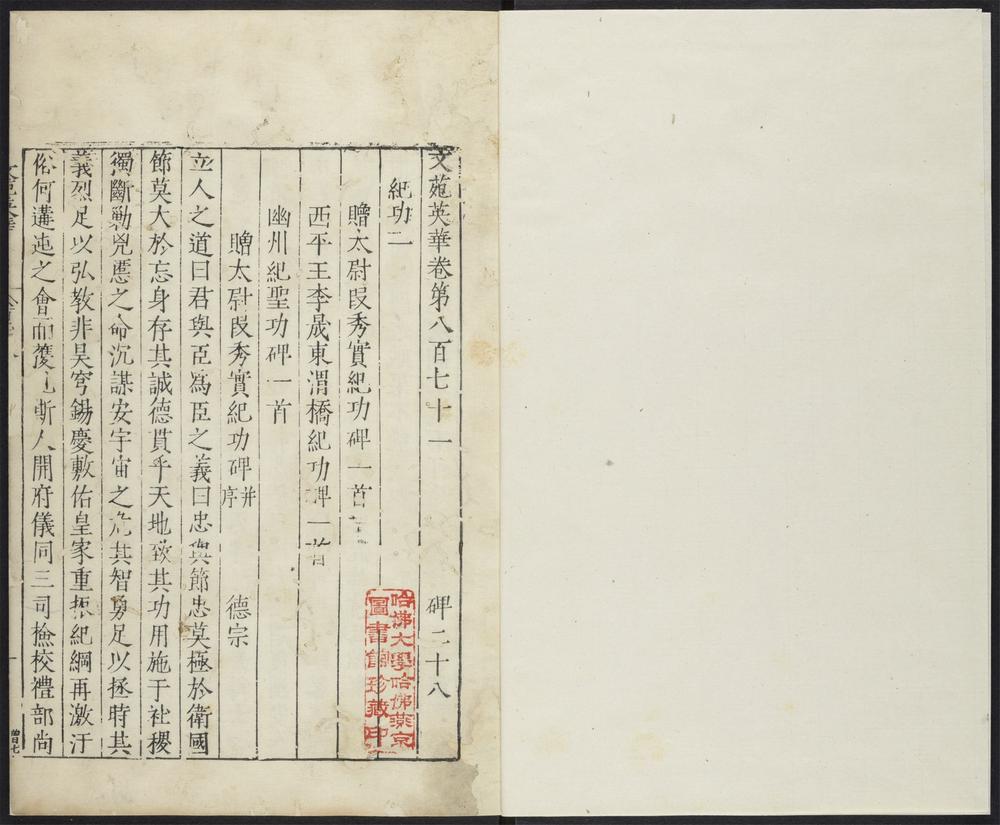 文苑英華卷第八百七十一 碑二十八
紀功二
贈太尉段秀實紀功碑一首
西平王李晟東渭橋紀功碑一首
幽州紀聖功碑一首
贈太尉段秀實紀功碑并序 德宗
立人之道曰君與臣爲臣之義曰忠與節忠莫極於衛國
節莫大於忘身存其誠德貫乎天地致其功用施于社稷
獨斷勦兇慝之命沉謀安宇宙之危其智勇足以拯時其
義烈足以弘教非昊穹錫慶敷佑皇家重振紀綱再激汙
俗何遘迍之會而獲斯人開府儀同三司檢校禮部尚
哈佛大學哈佛燕京
圖書館珍藏印